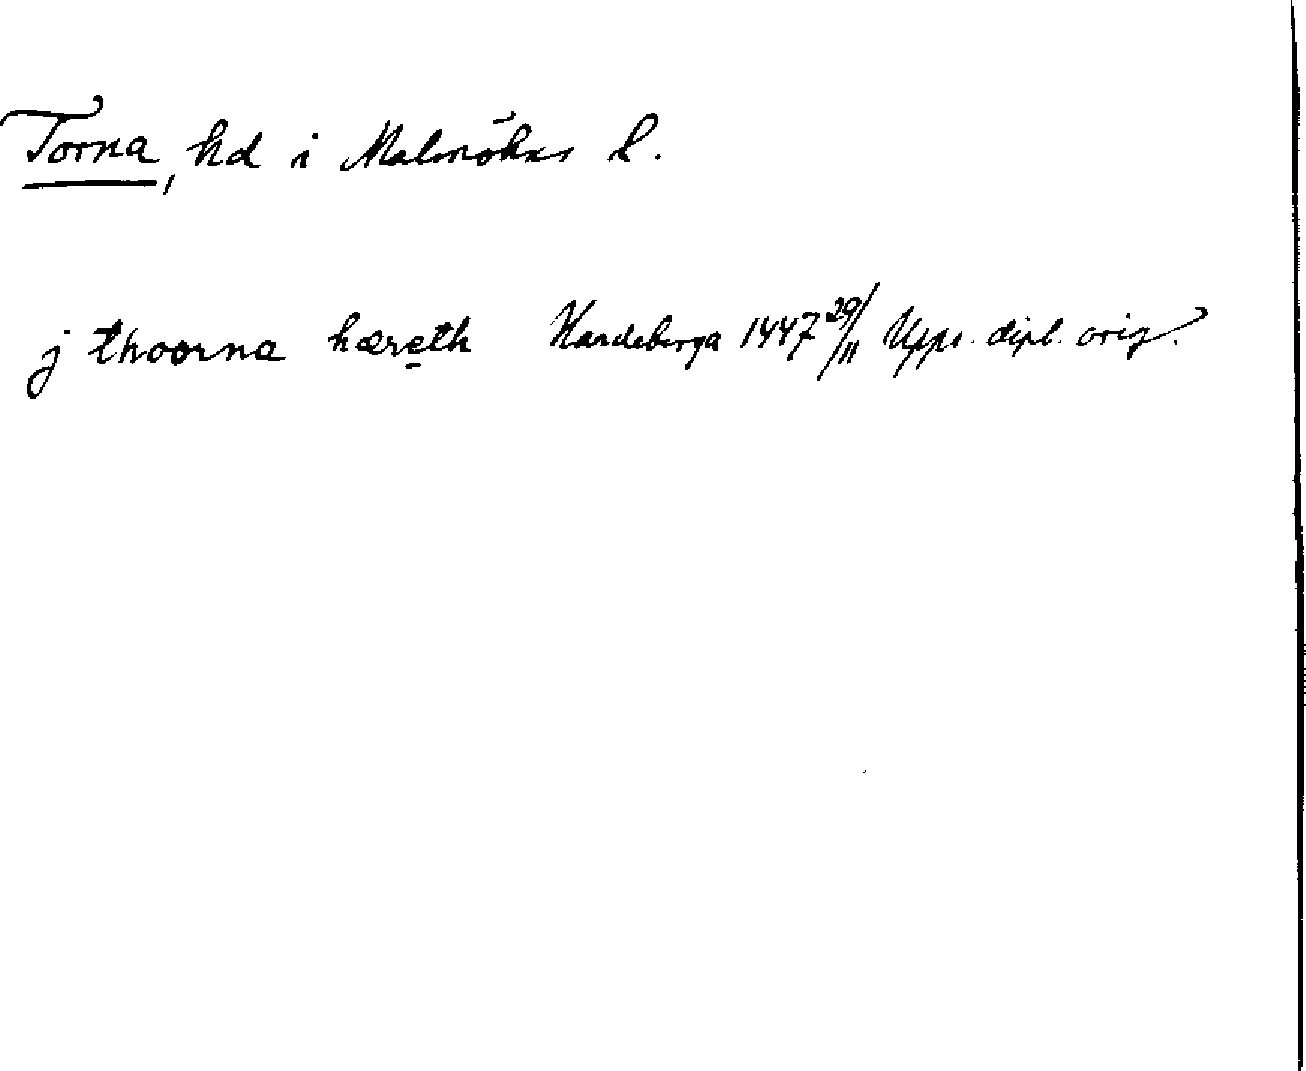 Torna, hd i Malmöhus l.
j thoorna hæreth Hardeberga 1447 29/11 Upps. dipl. orig.